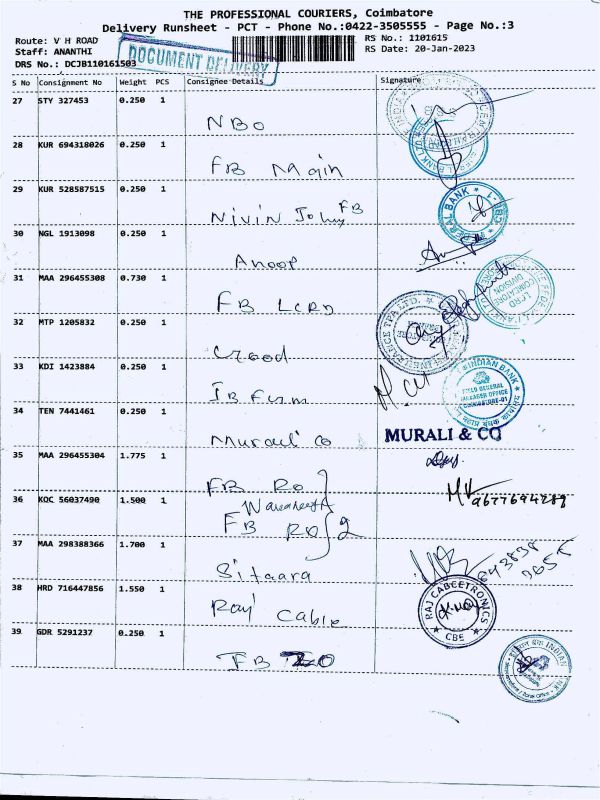 THE PROFESSIONAL COURIERS, Coimbatore
Delivery Runsheet - PCT - Phone No.:0422-3505555 - Page No.:3
Route: V H ROAD RS No.: 1101615
Staff: ANANTHI RS Date: 20-Jan-2023
DRS No.: DCJB110161503
DOCUMENT DELIVERY
S No Consignment No Weight PCS Consignee Details Signature
27 STY 327453 0.250 1
NBO
28 KUR 694318026 0.250 1
FB Main
29 KUR 528587515 0.250 1
Nivin Johny FB
30 NGL 1913098 0.250 1
Anoop
31 MAA 296455308 0.730 1
FB LCRD
32 MTP 1205832 0.250 1
33 KDI 1423884 0.250 1
34 TEN 7441461 0.250 1
Murali Co
MURALI & CO
35 MAA 296455304 1.775 1
FB RO
36 KOC 56037490 1.500 1
FB RO 2
37 MAA 298388366 1.700 1
Sitaara
38 HRD 716447856 1.550 1
Raj Cable
RAJ CABCETRONICS
CBE
39 GDR 5291237 0.250 1